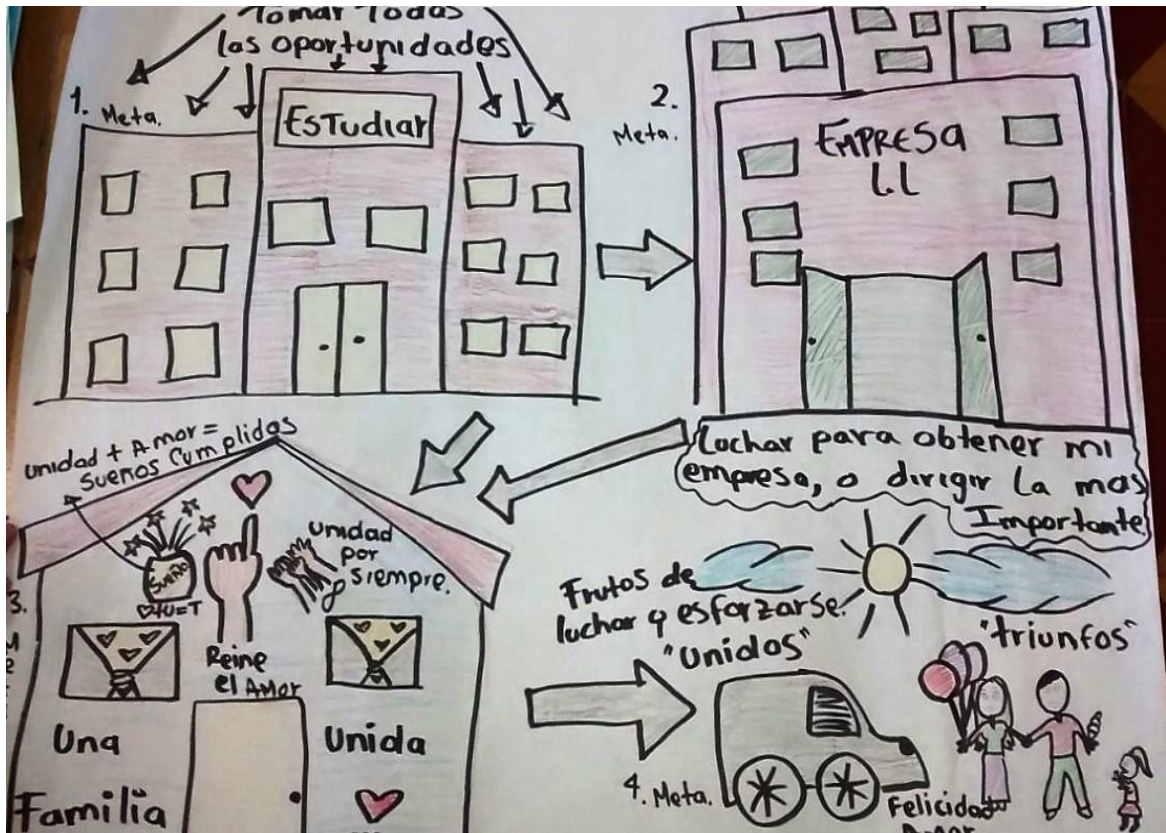 Tomar Todas
las oportunidades
1. Meta.
EsTudiar
2.
Meta.
EMPRESA
L.L
Luchar para obtener mi
empresa, o dirigir la mas
Importante
unidad + Amor =
Sueños Cumplidos
Sueño
♡+U=T
unidad
por
siempre.
3.
M
e
Reine
el Amor
Una
Unida
Familia
Frutos de
luchar y esforzarse.
"unidos"
"triunfos"
4. Meta.
Felicidad
Amor